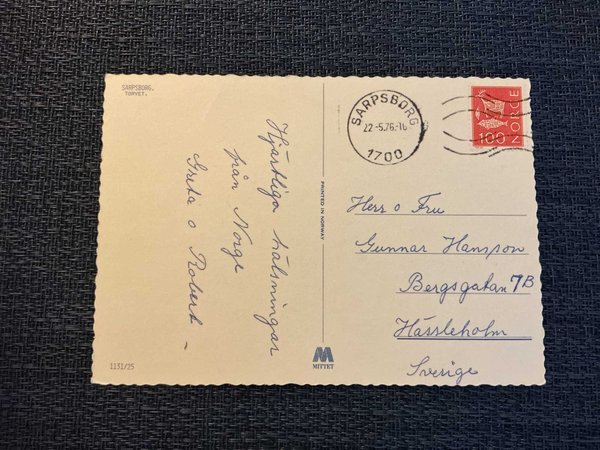 SARPSBORG.
TORVET.
Hjärtliga hälsningar
från Norge
Greta o Robert –
1131/25
PRINTED IN NORWAY
M
MITTET
SARPSBORG
22.-5.76.-16
1700
100 NORGE
Herr o Fru
Gunnar Hansson
Bergsgatan 7B
Hässleholm
Sverige